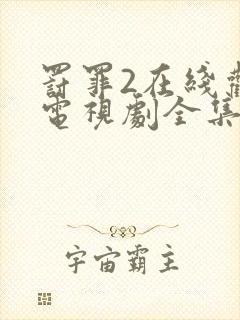 罸罪2在綫觀
電視劇全集
宇宙霸主